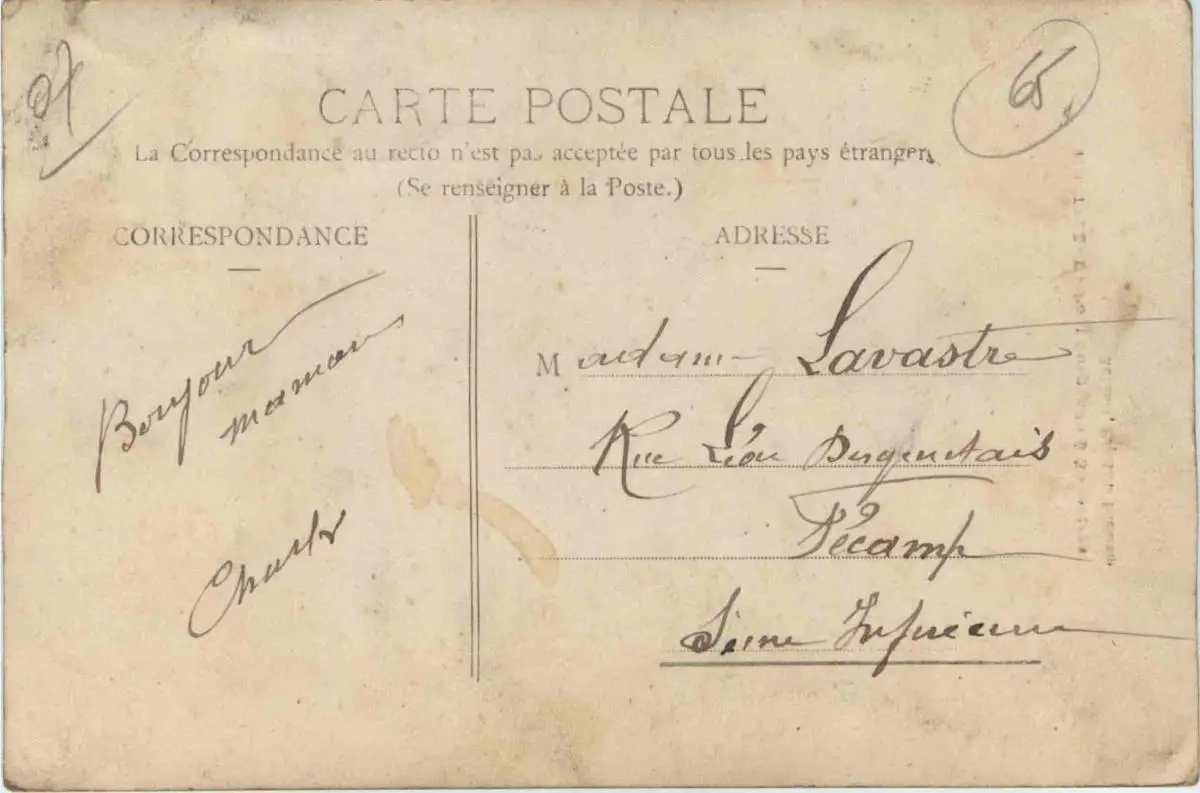 07
65
CARTE POSTALE
La Correspondance au recto n'est pas acceptée par tous les pays étrangers
(Se renseigner à la Poste.)
CORRESPONDANCE
ADRESSE
Bonjour
maman
Charles
Madame Lavastre
Rue Léon Desgenétais
Fécamp
Seine Inférieure